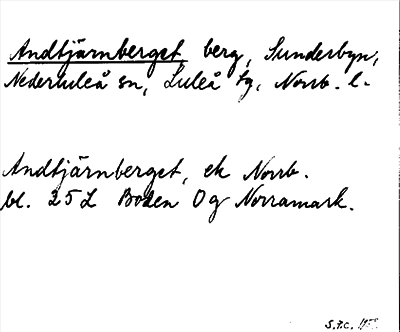 Andtjärnberget berg, Sunderbyn,
Nederluleå sn, Luleå tg, Norrb. l.
Andtjärnberget, ek Norrb.
bl. 25L Boden Og Norramark.
S.F.C.